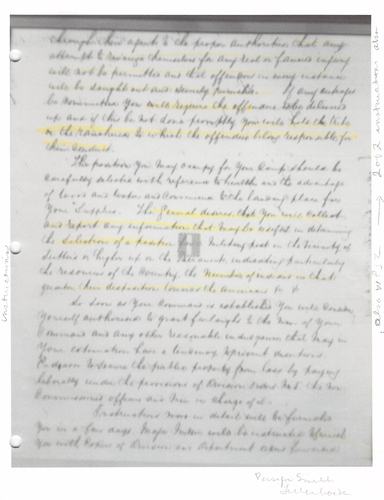 through their agents to the proper authorities that any
attempt to revenge themselves for any real or fancied injury
will not be permitted and that offenders in every instance
will be sought out and severely punished. If any outrages
be committed You will require the offenders to be delivered
up and if this be not done promptly You will hold the Tribe
or the Rancheria to which the offenders belong responsible for
their conduct.
The position You may occupy for Your Camp should be
carefully selected with reference to health and the advantage
of wood and water and convenience to the landing place for
Your Supplies. The General desires that You will collect
and report any information that may be useful in determining
the Selection of a position Military post in the vicinity of
Sutter's or higher up on the Sacramento indicating particularly
the resources of the Country, the Number of indians in that
quarter their disposition towards the Americans
So soon as Your Command is established You will consider
Yourself authorized to grant furloughs to the Men of Your
Command and any other reasonable indulgences that may in
Your estimation have a tendency to prevent desertions.
to secure the public property from loss by paying
liberally under the provisions of Division orders No the Non
Commissioned officers and Men in charge of it.
Instructions more in detail will be furnished
You in a few days. Major will be instructed to furnish
You with Copies of Division and Department orders
instructions
also
2002 instructions also
Persifor Smith
Letterbook